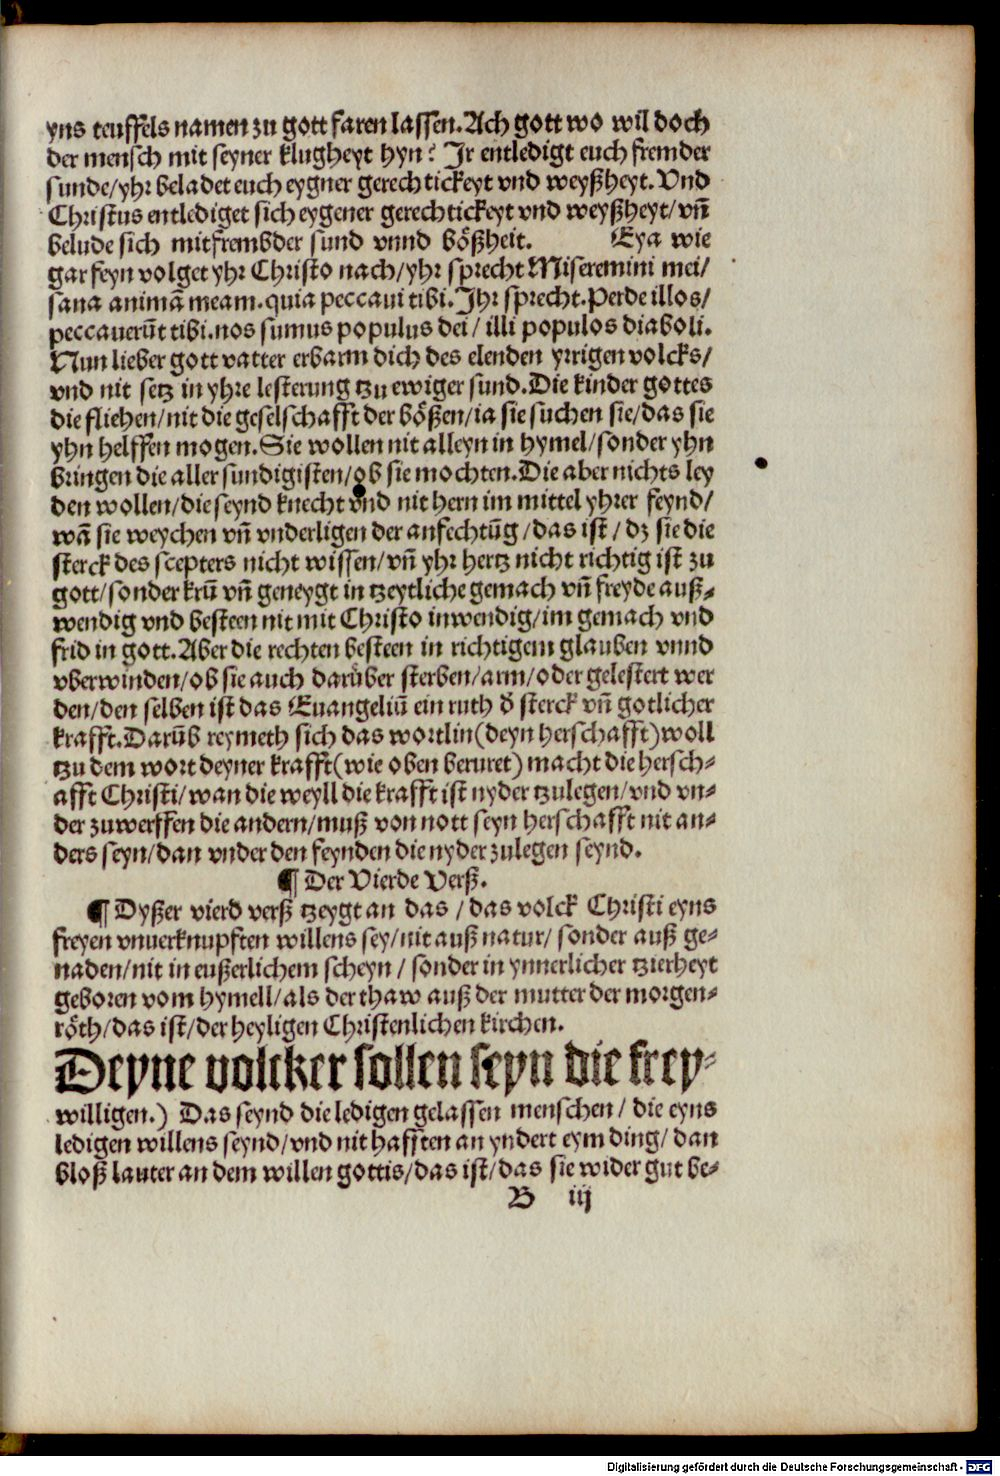 yns teuffels namen zu gott faren lassen. Ach gott wo wil doch
der mensch mit seyner klugheyt hyn? Jr entledigt euch fremder
sunde/yhr beladet euch eygner gerechtickeyt vnd weyßheyt. Vnd
Christus entlediget sich eygener gerechtickeyt vnd weyßheyt/vñ
belude sich mit frembder sund vnnd bößheit. Eya wie
gar feyn volget yhr Christo nach/yhr sprecht Miseremini mei/
sana animã meam. quia peccaui tibi. Jhr sprecht. Perde illos/
peccauerũt tibi. nos sumus populus dei/ illi populos diaboli.
Nun lieber gott vatter erbarm dich des elenden yrrigen volcks/
vnd nit setz in yhre lesterung tzu ewiger sund. Die kinder gottes
die fliehen/nit die geselschafft der bößen/ia sie suchen sie/das sie
yhn helffen mogen. Sie wollen nit alleyn in hymel/sonder yhn
bringen die aller sundigisten/ob sie mochten. Die aber nichts ley
den wollen/die seynd knecht vnd nit hern im mittel yhrer feynd/
wã sie weychen vñ vnderligen der anfechtũg/das ist/ dz sie die
sterck des scepters nicht wissen/vñ yhr hertz nicht richtig ist zu
gott/sonder krũ vñ geneygt in tzeytliche gemach vñ freyde auß⸗
wendig vnd besteen nit mit Christo inwendig/im gemach vnd
frid in gott. Aber die rechten besteen in richtigem glauben vnnd
vberwinden/ob sie auch darüber sterben/arm/oder gelestert wer
den/den selben ist das Euangeliũ ein ruth d̕ sterck vñ gotlicher
krafft. Darũb reymeth sich das wortlin(deyn herschafft)woll
tzu dem wort deyner krafft(wie oben beruret) macht die hersch⸗
afft Christi/wan die weyll die krafft ist nyder tzulegen/vnd vn⸗
der zuwerffen die andern/muß von nott seyn herschafft nit an⸗
ders seyn/dan vnder den feynden die nyder zulegen seynd.
¶ Der Vierde Verß.
¶ Dyßer vierd verß tzeygt an das/das volck Christi eyns
freyen vnuerknupften willens sey/nit auß natur/ sonder auß ge⸗
naden/nit in eußerlichem scheyn/ sonder in ynnerlicher tzierheyt
geboren vom hymell/als der thaw auß der mutter der morgen⸗
röth/das ist/der heyligen Christenlichen kirchen.
Deyne volcker sollen seyn die frey⸗
willigen.) Das seynd die ledigen gelassen menschen/ die eyns
ledigen willens seynd/vnd nit hafften an yndert eym ding/ dan
bloß lauter an dem willen gottis/das ist/das sie wider gut be⸗
B iij
Digitalisierung gefördert durch die Deutsche Forschungsgemeinschaft - DFG